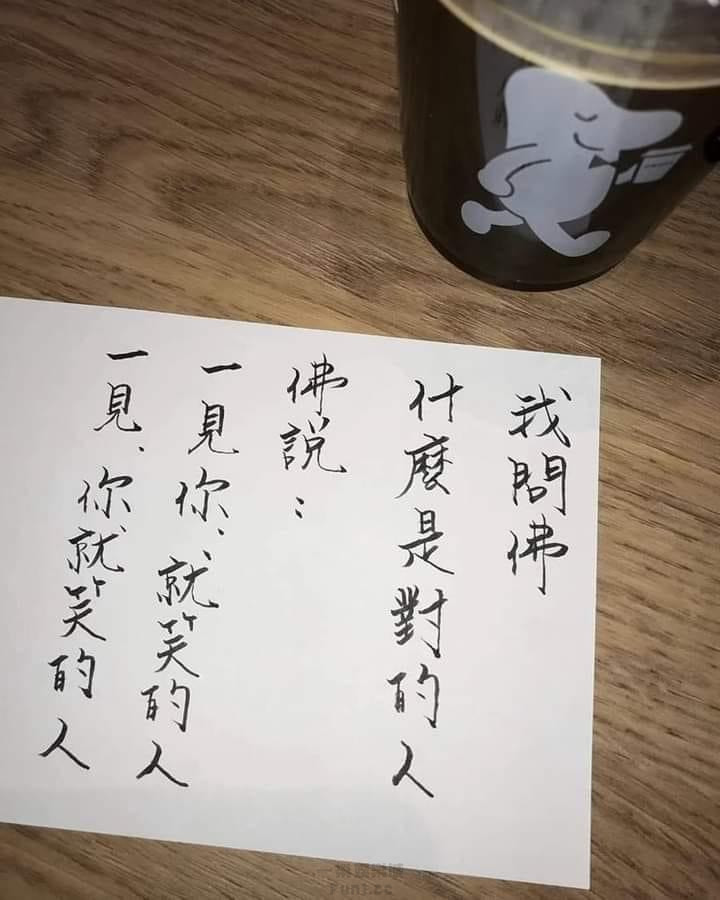 我問佛
什麼是對的人
佛說：
一見你、就笑的人
一見、你就笑的人
Funi.cc